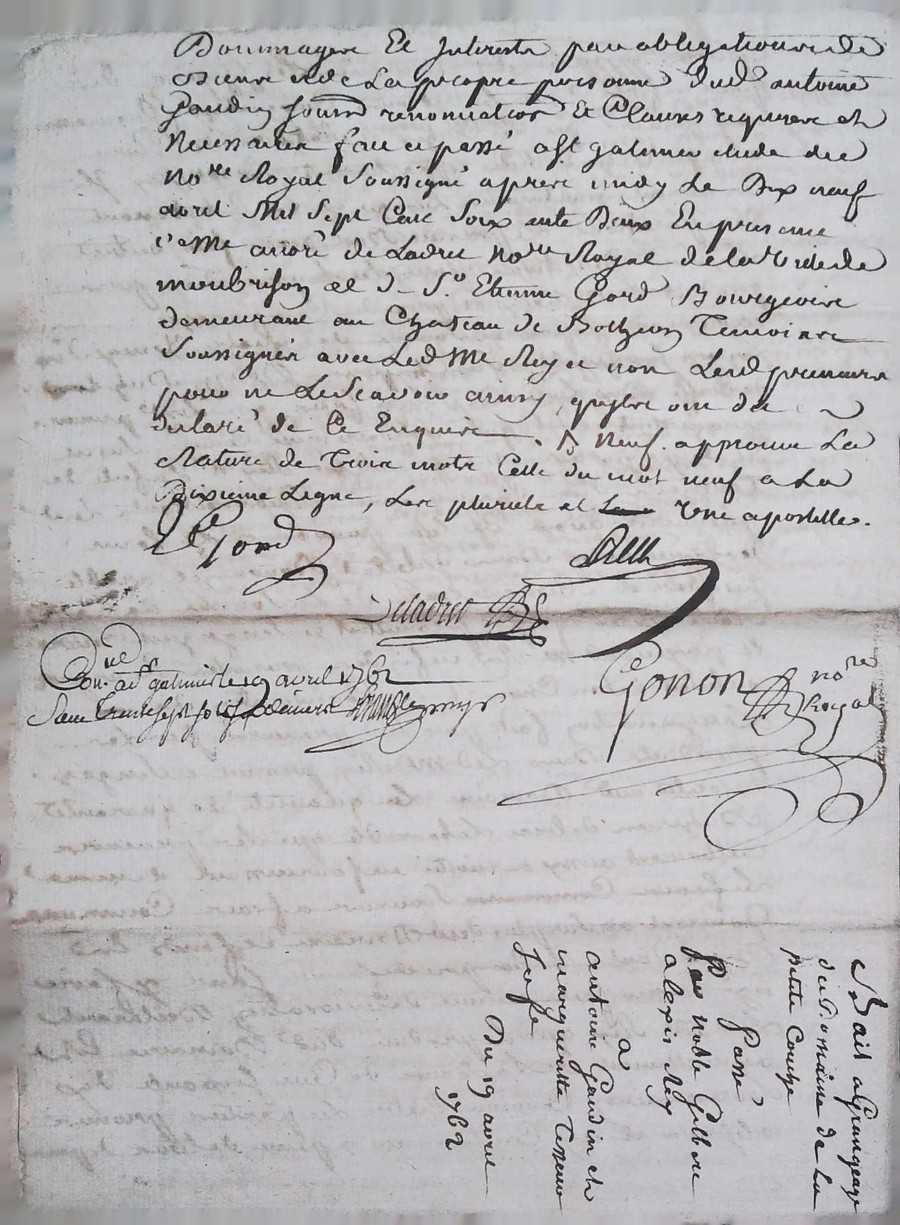 Dommagere Et Interestz par obligation de
Bienns et de La propre personne dud antoine
Gaudin soumn renonciation Et Clauses requises et
Necessaires fait et passé a St galmier etude de
nore Royal soussigné apres midy Le Dix neuf
avril Mil Sept Cent Soixante Deux En presence
de Me de Ladret nore Royal de la ville de
montbrison et de Sr Etienne Gord Bourgeois
demeurant au Chateau de Botheon Temoins
soussignés avec Led Me Rey et non Lesd preneurs
pour ne Le Scavoir ainsy qu'ils ont de
declaré de Ce Enquis. Neuf. approuvé La
Rature de trois mots Celle du mot neuf a La
Dixieme Ligne, Les pluriels et Une apostille.
E Gord
Rey
Deladret
Conlé a St galmier le 19 avril 1762
Reçu trente sept sols
Gonon nore Royal
Bail a Grangeage
du Domaine de La
petite Couhe
passé
Par noble Gilbert
alexis Rey
a
antoine Gaudin et
margueritte
sa fe
Du 19 avril
1762